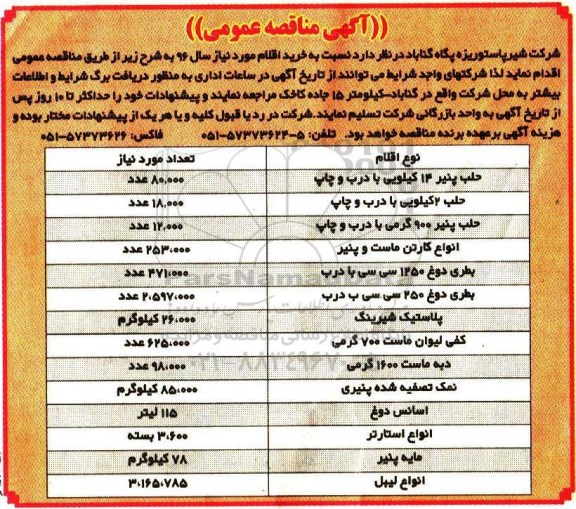 ((آگهی مناقصه عمومی))
شرکت شیر پاستوریزه پگاه گناباد در نظر دارد نسبت به خرید اقلام مورد نیاز سال ۹۶ به شرح زیر از طریق مناقصه عمومی
اقدام نماید لذا شرکتهای واجد شرایط می توانند از تاریخ آگهی در ساعات اداری به منظور دریافت برگ شرایط و اطلاعات
بیشتر به محل شرکت واقع در گناباد-کیلومتر ۱۵ جاده کاخک مراجعه نمایند و پیشنهادات خود را حداکثر تا ۱۰ روز پس
از تاریخ آگهی به واحد بازرگانی شرکت تسلیم نمایند. شرکت در رد یا قبول کلیه و یا هر یک از پیشنهادات مختار بوده و
هزینه آگهی بر عهده برنده مناقصه خواهد بود. تلفن: ۵-۵۷۳۷۳۶۲۴-۰۵۱ فاکس: ۵۷۳۷۳۶۲۶-۰۵۱
نوع اقلام تعداد مورد نیاز
حلب پنیر ۱۴ کیلویی با درب و چاپ ۸۰،۰۰۰ عدد
حلب ۲کیلویی با درب و چاپ ۱۸،۰۰۰ عدد
حلب پنیر ۹۰۰ گرمی با درب و چاپ ۱۲،۰۰۰ عدد
انواع کارتن ماست و پنیر ۲۵۳،۰۰۰ عدد
بطری دوغ ۱۲۵۰ سی سی با درب ۴۷۱،۰۰۰ عدد
بطری دوغ ۲۵۰ سی سی ب درب ۲،۵۹۷،۰۰۰ عدد
پلاستیک شیرینگ ۲۶،۰۰۰ کیلوگرم
کفی لیوان ماست ۷۰۰ گرمی ۶۲۵،۰۰۰ عدد
دبه ماست ۱۶۰۰ گرمی ۹۸،۰۰۰ عدد
نمک تصفیه شده پنیری ۸۵،۰۰۰ کیلوگرم
اسانس دوغ ۱۱۵ لیتر
انواع استارتر ۳،۶۰۰ بسته
مایه پنیر ۷۸ کیلوگرم
انواع لیبل ۳،۱۶۵،۷۸۵
ParsNamadData
۰۲۱-۸۸۳۴۹۶۷۰